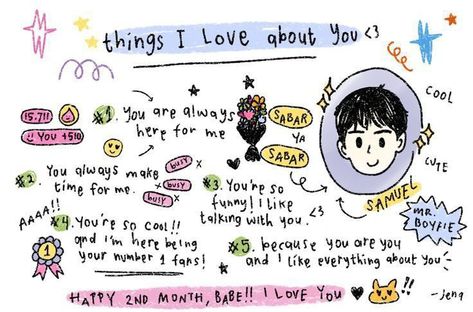 things I Love about You <3
15.7!!
!! You +510
#1. You are always
here for me
SABAR
YA
SABAR
COOL
CUTE
#2. You always make
time for me.
busy x
busy x
busy x
#3. You're so
funny! I like
talking with you. <3
SAMUEL
MR.
BOYFIE
AAAA!!
#4. You're so cool!!
and I'm here being
your number 1 fans!
1
#5. because you are you
and I like everything about you
HAPPY 2ND MONTH, BABE!! I LOVE YOU
!!
-jenq